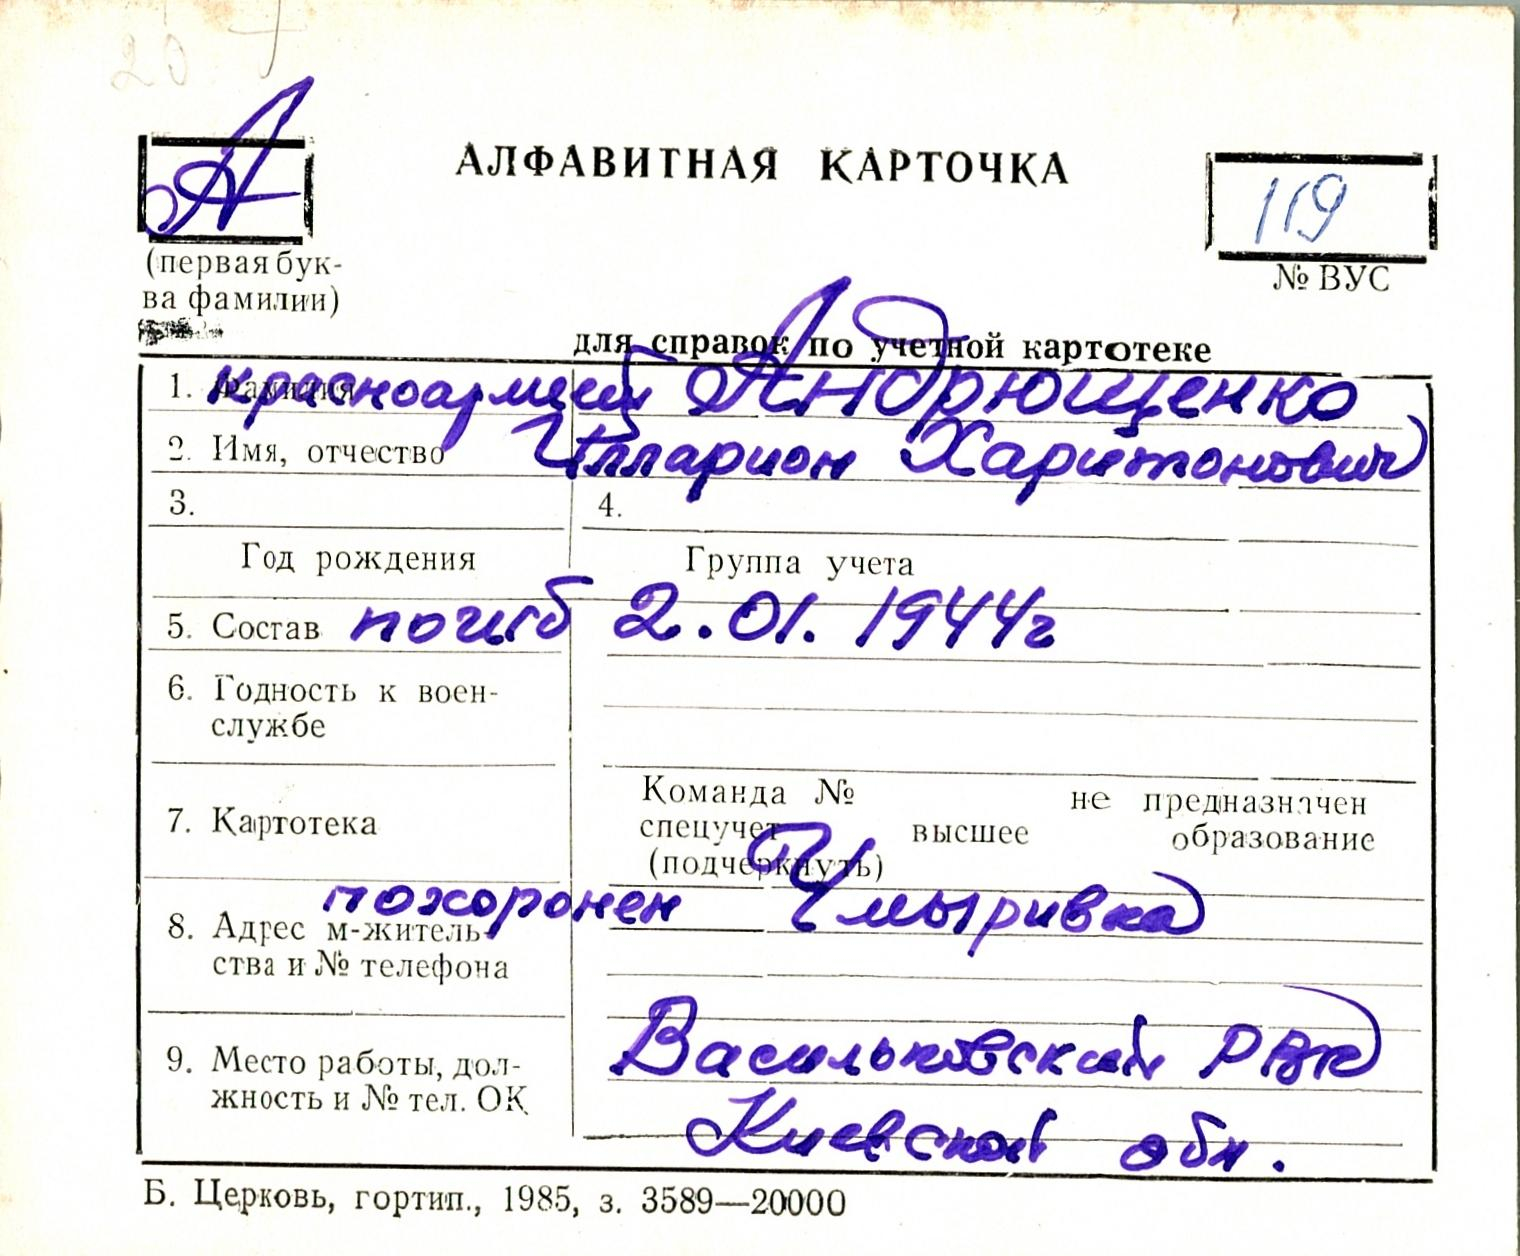 20
А
АЛФАВИТНАЯ КАРТОЧКА
119
(первая бук-
ва фамилии)
№ ВУС
для справок по учетной картотеке
1. Фамилия красноармеец Андрющенко
2. Имя, отчество Илларион Харитонович
3. 4.
Год рождения Группа учета
5. Состав погиб 2.01.1944г
6. Годность к воен-
службе
Команда № не предназначен
7. Картотека спецучет высшее образование
(подчеркнуть)
похоронен Чмыривка
8. Адрес м-житель-
ства и № телефона
Васильковский РВК
9. Место работы, дол-
жность и № тел. ОК
Киевской обл.
Б. Церковь, гортип., 1985, з. 3589—20000